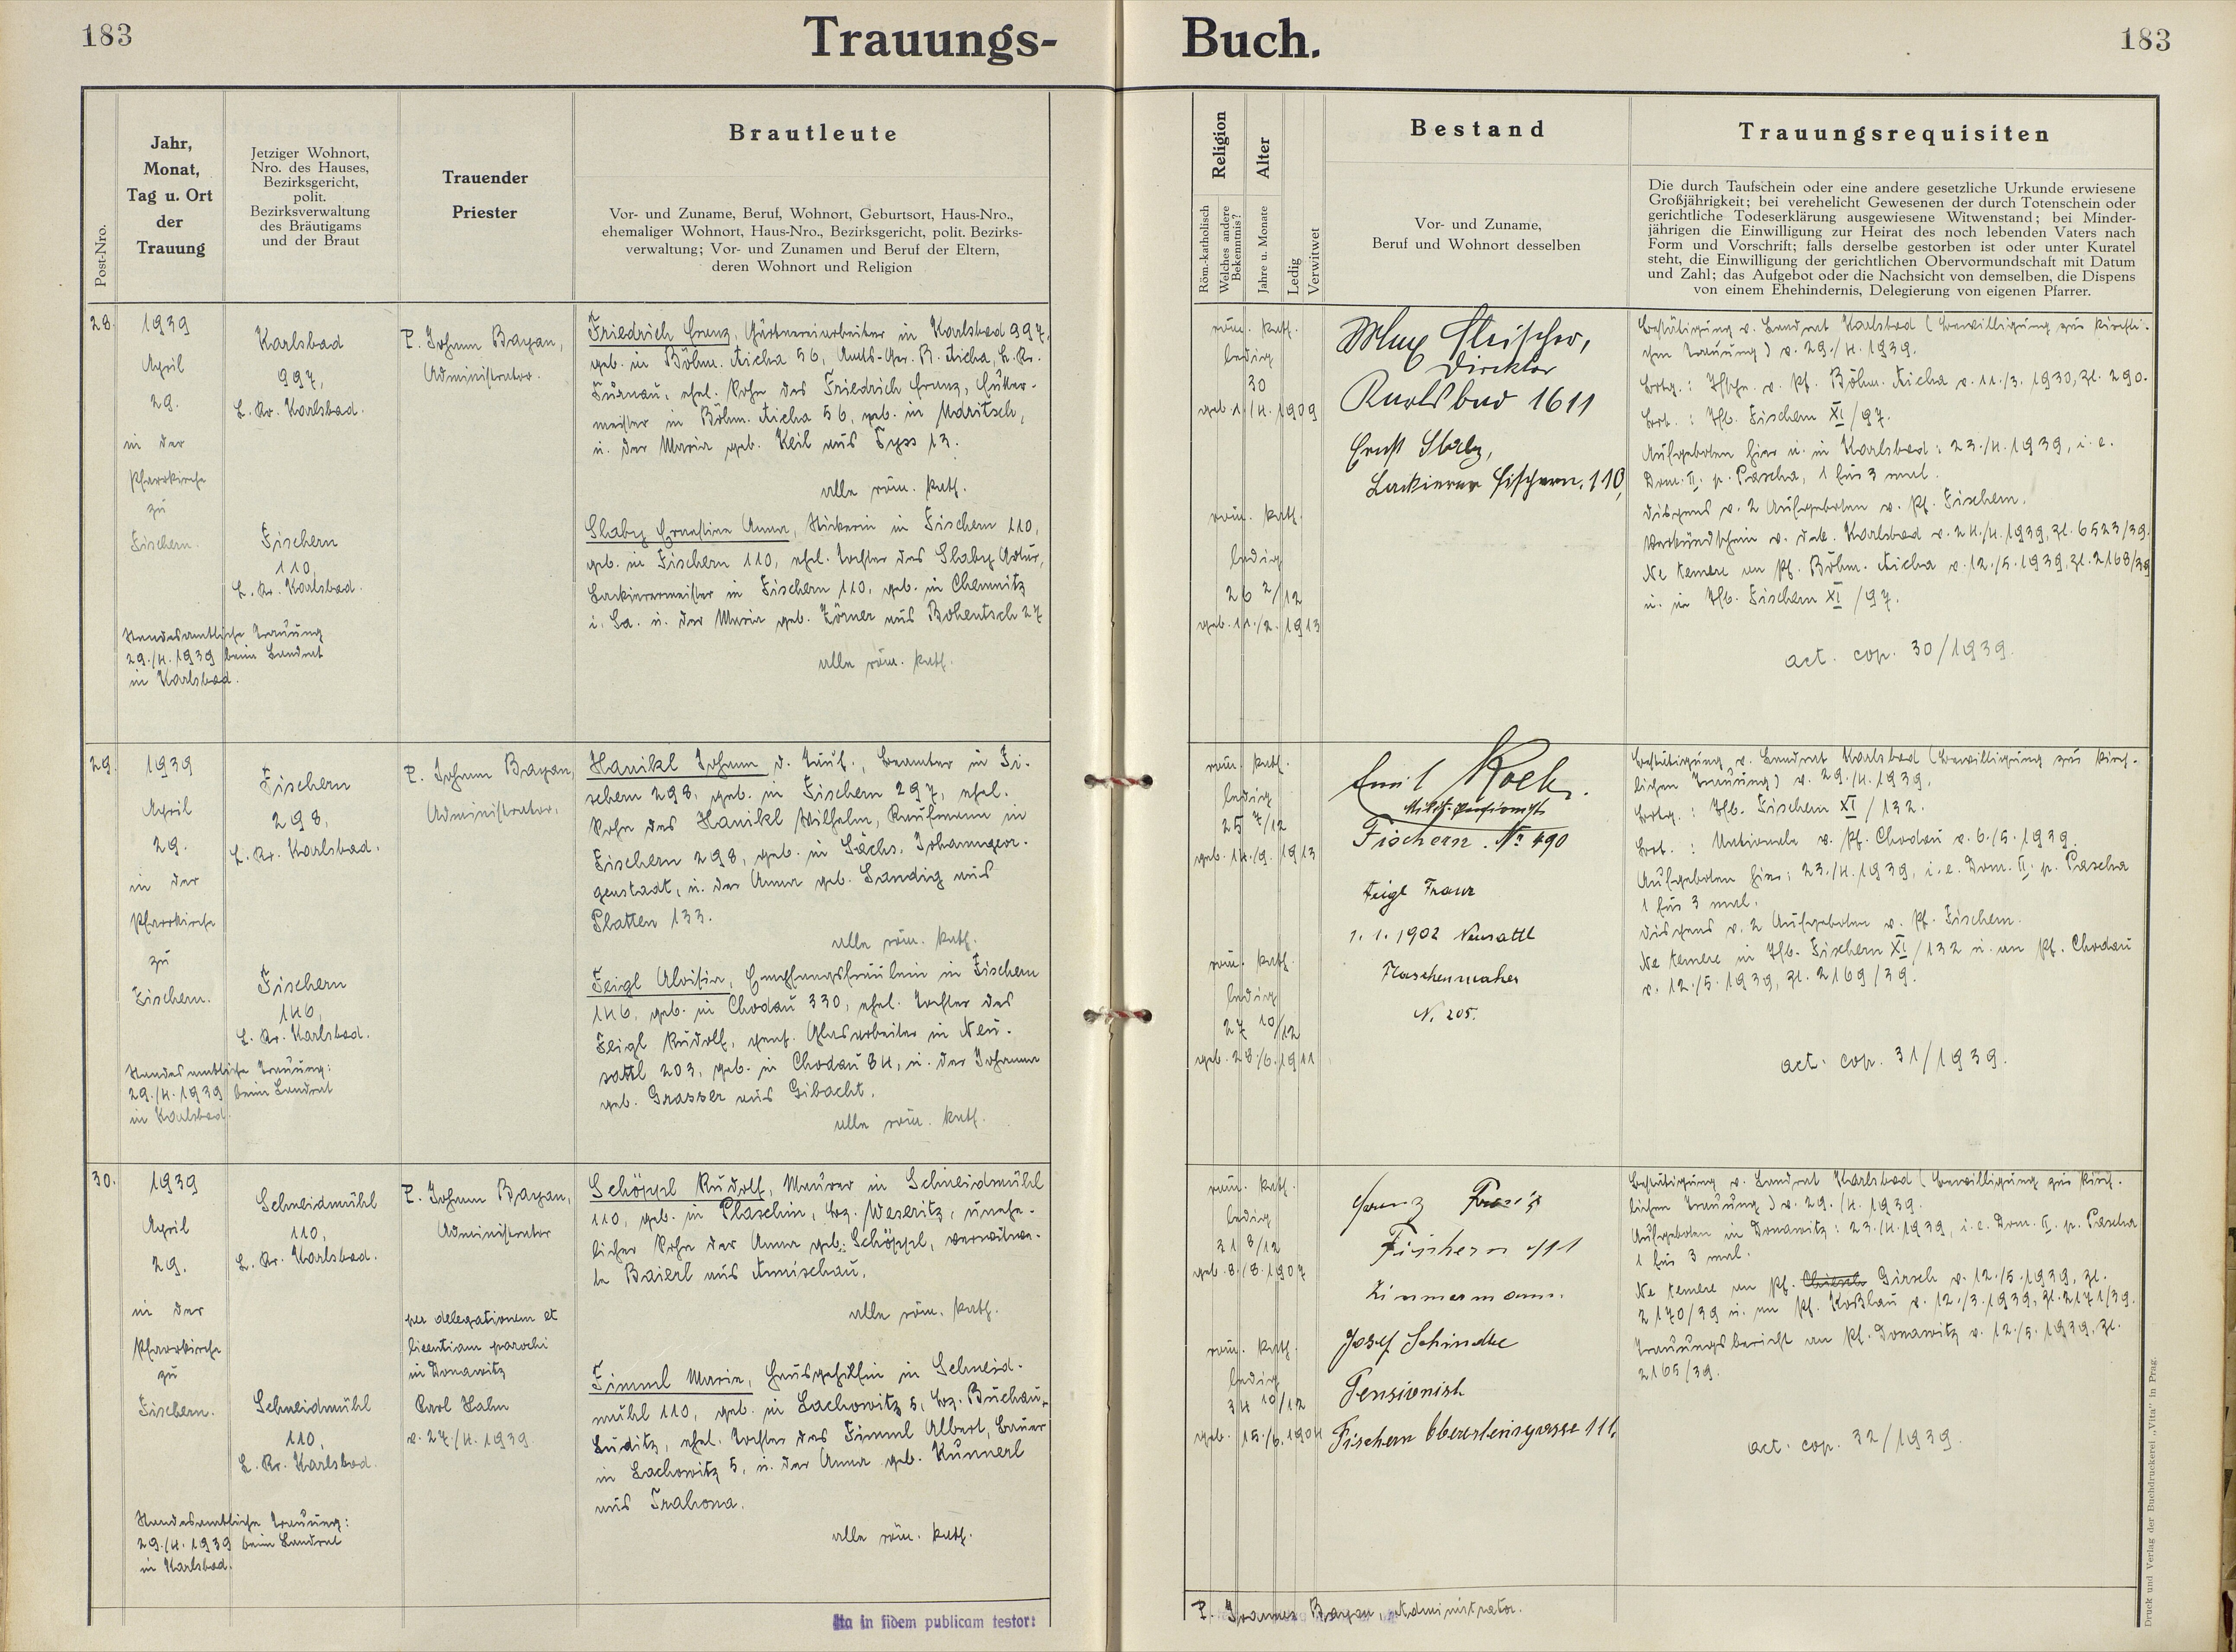 183
Trauungs-
Buch.
183
Post-Nro.
Jahr,
Monat,
Tag u. Ort
der
Trauung
Jetziger Wohnort,
Nro. des Hauses,
Bezirksgericht,
polit.
Bezirksverwaltung
des Bräutigams
und der Braut
Trauender
Priester
Brautleute
Vor- und Zuname, Beruf, Wohnort, Geburtsort, Haus-Nro.,
ehemaliger Wohnort, Haus-Nro., Bezirksgericht, polit. Bezirks-
verwaltung; Vor- und Zunamen und Beruf der Eltern,
deren Wohnort und Religion
Religion
Röm.-katholisch
Welches andere
Bekenntnis?
Alter
Jahre u. Monate
Ledig
Verwitwet
Bestand
Vor- und Zuname,
Beruf und Wohnort desselben
Trauungsrequisiten
Die durch Taufschein oder eine andere gesetzliche Urkunde erwiesene
Großjährigkeit; bei verehelicht Gewesenen der durch Totenschein oder
gerichtliche Todeserklärung ausgewiesene Witwenstand; bei Minder-
jährigen die Einwilligung zur Heirat des noch lebenden Vaters nach
Form und Vorschrift; falls derselbe gestorben ist oder unter Kuratel
steht, die Einwilligung der gerichtlichen Obervormundschaft mit Datum
und Zahl; das Aufgebot oder die Nachsicht von demselben, die Dispens
von einem Ehehindernis, Delegierung von eigenen Pfarrer.
28.
1939
April
29.
in der
Pfarrkirche
zu
Fischern.
Standesamtliche Trauung
29./4. 1939 beim Landrat
in Karlsbad.
Karlsbad
997,
L. Kr. Karlsbad.
Fischern
110,
L. Kr. Karlsbad.
P. Johann Bayan,
Administrator.
Friedrich Franz, Gärtnereiarbeiter in Karlsbad 997,
geb. in Böhm. Aicha 56, Amts-Ger. B. Aicha, L. Kr.
Turnau, ehel. Sohn des Friedrich Franz,
meister in Böhm. Aicha 56, geb. in Maritsch,
u. der Maria geb. Keil aus Tyss 13.
alle röm. kath.
Slaby Ernestine Anna, Stickerin in Fischern 110,
geb. in Fischern 110, ehel. Tochter des Slaby Artur,
Lackierermeister in Fischern 110, geb. in Chemnitz
i. Sa. u. der Maria geb. Zörner aus Bohentsch 27
alle röm. kath.
röm. kath.
ledig
30
geb. 1./4. 1909
röm. kath.
ledig
26 2/12
geb. 11./2. 1913
Max Fleischer,
Direktor
Karlsbad 1611
Ernst Slaby,
Lackierer Fischern, 110,
Bestätigung v. Landrat Karlsbad (Bewilligung zur kirchli-
chen Trauung) v. 29./4. 1939.
Brtg.: Tfschn. v. Pf. Böhm. Aicha v. 11./3. 1930, Zl. 290.
Brt.: Tfb. Fischern XI/97.
Aufgeboten hier u. in Karlsbad: 23./4. 1939, i. e.
Dom. II. p. Pascha, 1 für 3 mal.
Dispens v. 2 Aufgeboten v. Pf. Fischern.
Verkündschein v. Dek. Karlsbad v. 24./4. 1939, Zl. 6523/39.
Ne temere an Pf. Böhm. Aicha v. 12./5. 1939, Zl. 2168/39
u. in Tfb. Fischern XI/97.
act. cop. 30/1939.
29.
1939
April
29.
in der
Pfarrkirche
zu
Fischern.
Standesamtliche Trauung:
29./4. 1939 beim Landrat
in Karlsbad.
Fischern
298,
L. Kr. Karlsbad.
Fischern
146,
L. Kr. Karlsbad.
P. Johann Bayan,
Administrator.
Hanikl Johann d. Tauf., Beamter in Fi-
schern 298, geb. in Fischern 297, ehel.
Sohn des Hanikl Wilhelm, Kaufmann in
Fischern 298, geb. in Sächs. Johanngeor-
genstadt, u. der Anna geb. Sandig aus
Platten 133.
alle röm. kath.
Feigl Aloisia, Empfangsfräulein in Fischern
146, geb. in Chodau 330, ehel. Tochter des
Feigl Rudolf, gew. Glasarbeiter in Neu-
sattl 203, geb. in Chodau 84, u. der Johanna
geb. Grasser aus Gibacht.
alle röm. kath.
röm. kath.
ledig
25 7/12
geb. 14./9. 1913
röm. kath.
ledig
27 10/12
geb. 28./6. 1911
Emil Koch.
Fischern. No 490
Feigl Franz
1. 1. 1902 Neusattl
Flaschenmacher
N. 205.
Bestätigung v. Landrat Karlsbad (Bewilligung zur kirch-
lichen Trauung) v. 29./4. 1939.
Brtg.: Tfb. Fischern XI/132.
Brt.: Nationale v. Pf. Chodau v. 6./5. 1939.
Aufgeboten hier: 23./4. 1939, i. e. Dom. II. p. Pascha
1 für 3 mal.
Dispens v. 2 Aufgeboten v. Pf. Fischern.
Ne temere in Tfb. Fischern XI/132 u. an Pf. Chodau
v. 12./5. 1939, Zl. 2169/39.
act. cop. 31/1939.
30.
1939
April
29.
in der
Pfarrkirche
zu
Fischern.
Standesamtliche Trauung:
29./4. 1939 beim Landrat
in Karlsbad.
Schneidmühl
110,
L. Kr. Karlsbad.
Schneidmühl
110,
L. Kr. Karlsbad.
P. Johann Bayan,
Administrator
per delegationem et
licentiam parochi
in Donawitz
Karl Hahn
v. 27./4. 1939.
Schöppl Rudolf, Maurer in Schneidmühl
110, geb. in Plaschin, Bez. Weseritz, unehe-
licher Sohn der Anna geb. Schöppl, verwitwe-
te Baierl aus Amischau.
alle röm. kath.
Fimml Marie, Hausgehilfin in Schneid-
mühl 110, geb. in Lachowitz 5, Bez. Buchau-
Luditz, ehel. Tochter des Fimml Albert, Bauer
in Lachowitz 5, u. der Anna geb. Kunnerl
aus Trahona.
alle röm. kath.
röm. kath.
ledig
31 8/12
geb. 8./8. 1907
röm. kath.
ledig
34 10/12
geb. 15./6. 1904
Franz
Fischern
Zimmermann.
Josef Schindler
Pensionist
Fischern 111,
Bestätigung v. Landrat Karlsbad (Bewilligung zur kirch-
lichen Trauung) v. 29./4. 1939.
Aufgeboten in Donawitz: 23./4. 1939, i. e. Dom. II. p. Pascha
1 für 3 mal.
Ne temere an Pf. Girsch v. 12./5. 1939, Zl.
2170/39 u. an Pf. Koßlau v. 12./3. 1939, Zl. 2171/39.
Trauungsbericht an Pf. Donawitz v. 12./5. 1939, Zl.
2165/39.
act. cop. 32/1939.
Ita in fidem publicam testor:
P. Joannes Bayan, Administrator.
Druck und Verlag der Buchdruckerei „Vita" in Prag.